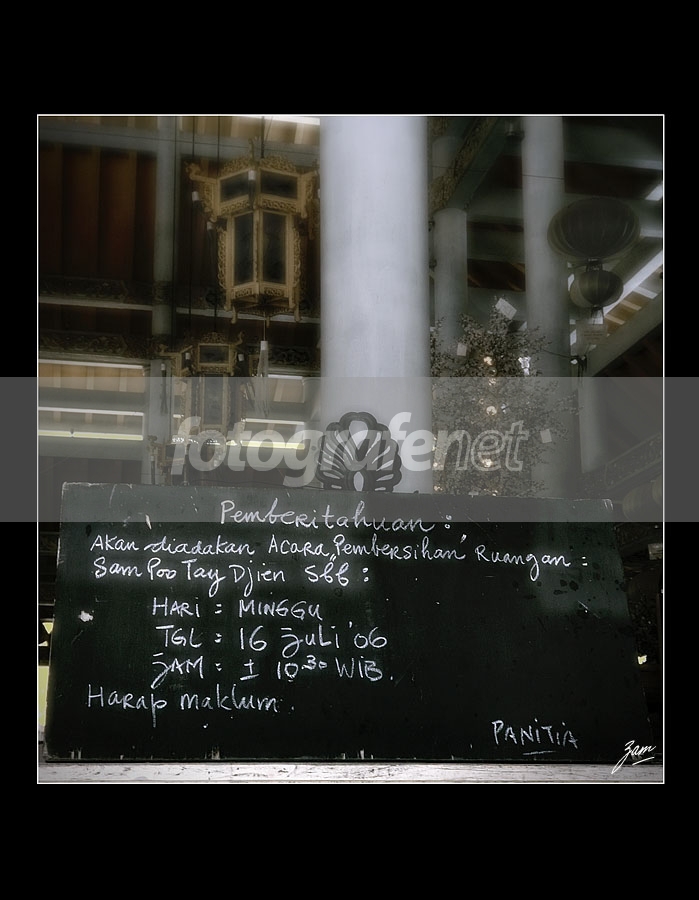 fotografernet
Pemberitahuan :
Akan diadakan Acara "Pembersihan" Ruangan :
Sam Poo Tay Djien Sbb :
HARI : MINGGU
TGL : 16 Juli '06
JAM : ± 10.30 WIB.
Harap maklum.
PANITIA
Zam